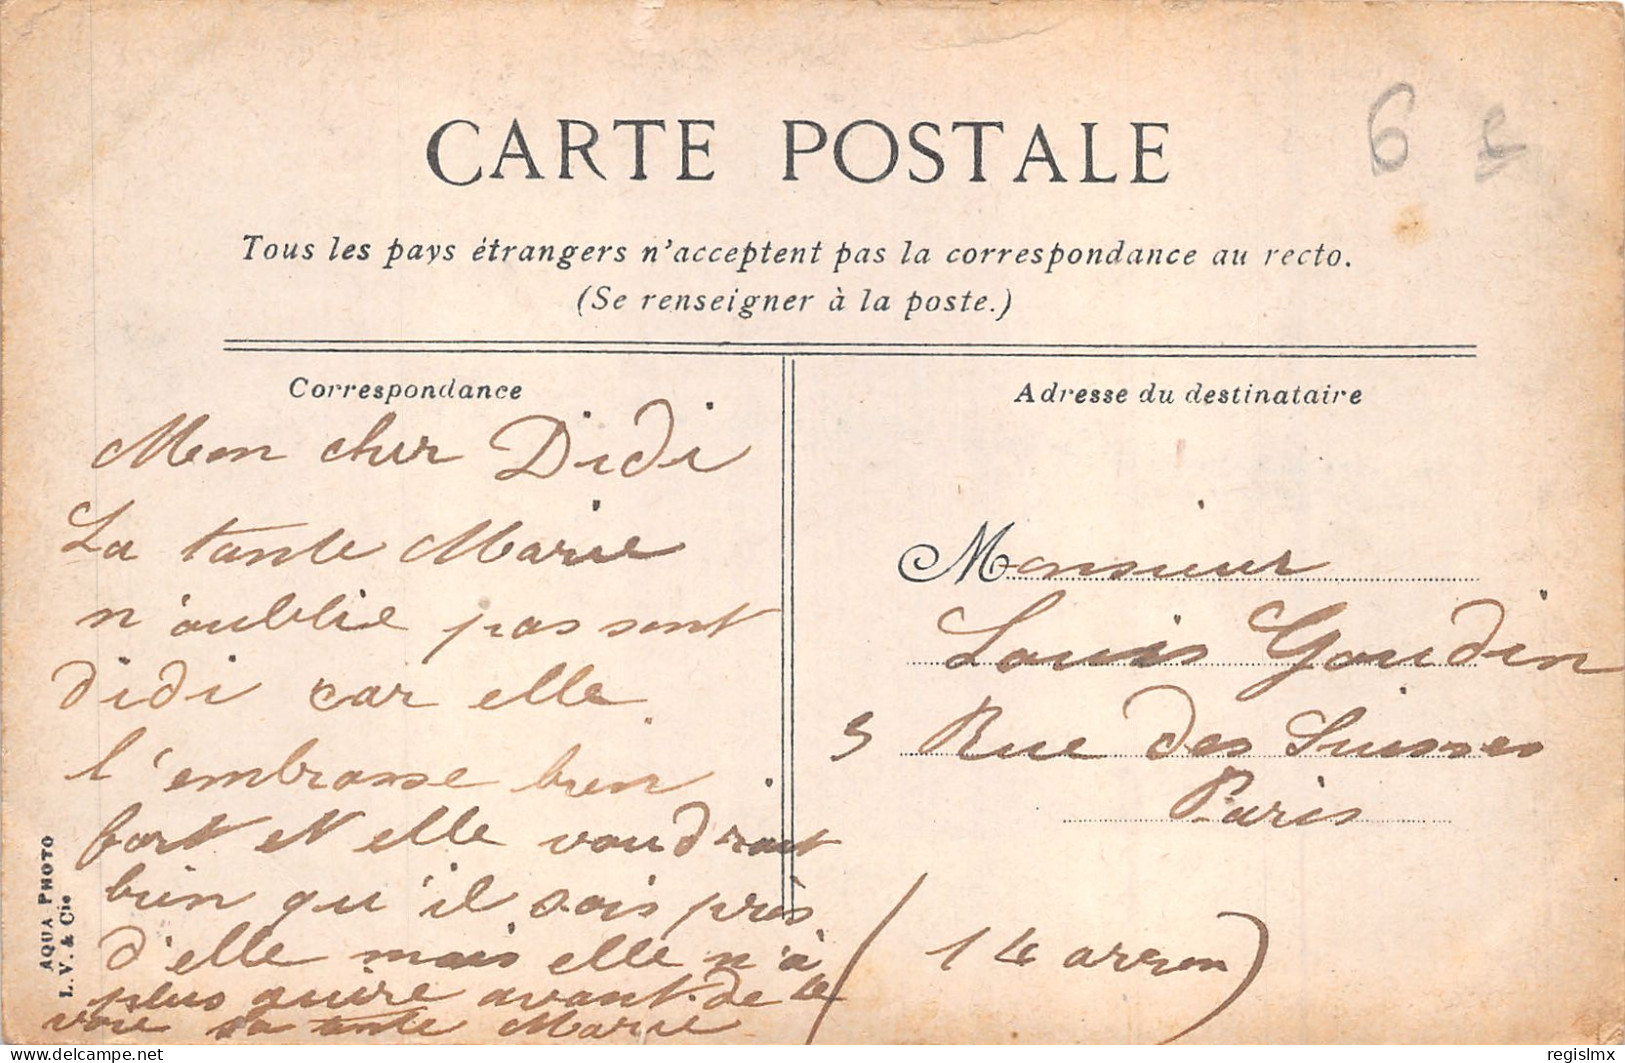 CARTE POSTALE
6 e
Tous les pays étrangers n'acceptent pas la correspondance au recto.
(Se renseigner à la poste.)
Correspondance
Mon cher Didi
La tante Marie
n'oublie pas sont
didi car elle
l'embrasse bien
fort et elle voudrait
bien qu'il sois près
d'elle mais elle n'à
plus guire avant de le
voir sa tante Marie
Adresse du destinataire
Monsieur
Louis Goudin
5 Rue des Suisses
Paris
(14 arron)
AQUA PHOTO
L. V. & Cie
delcampe.net
regislmx